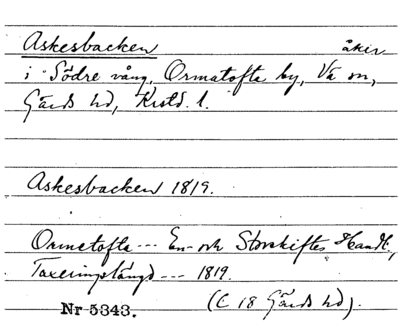 Askesbacken åkir
i Södre vång, Ormatofta by, Va sn,
Gärds hd, Kristd. l.
Askesbacken 1819.
Ormetofta --- En- och Storskiftes Handl.,
Taxeringslängd --- 1819.
Nr 5343. (C 18 Gärds hd).